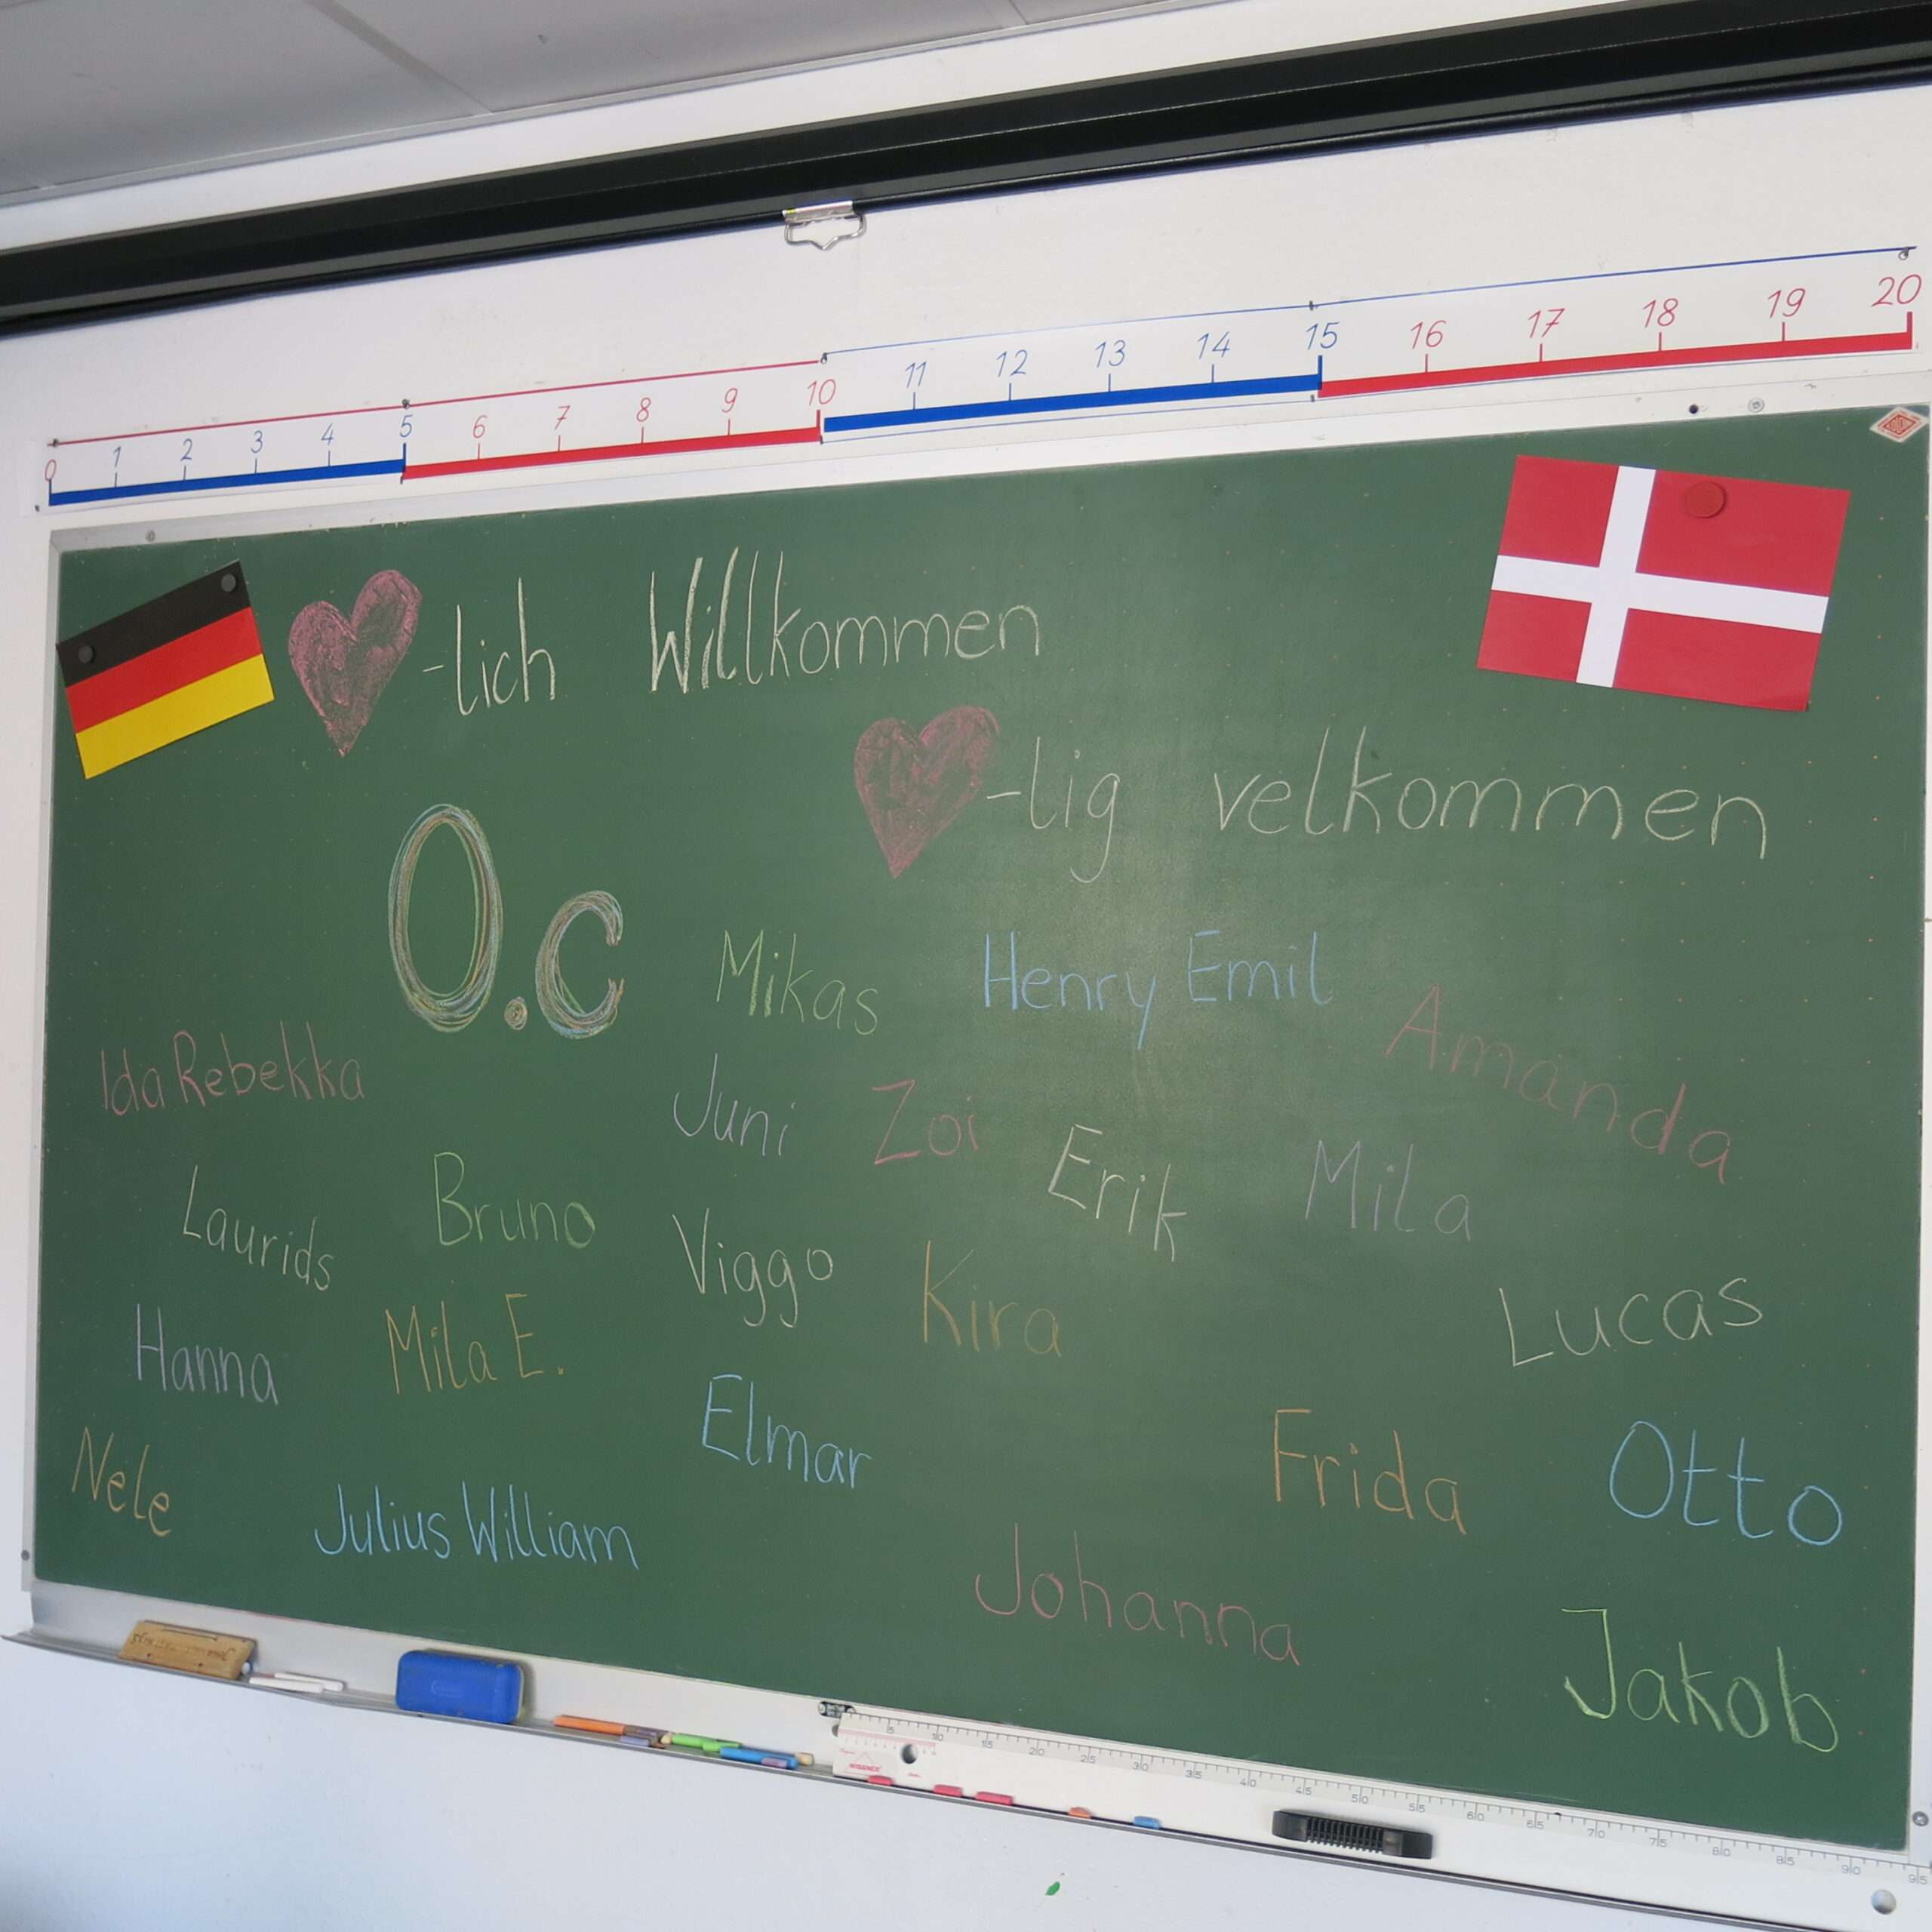 0 1 2 3 4 5 6 7 8 9 10 11 12 13 14 15 16 17 18 19 20
-lich Willkommen
-lig velkommen
0.c
Mikas
Henry Emil
Amanda
Ida Rebekka
Juni
Zoi
Erik
Mila
Laurids
Bruno
Viggo
Kira
Lucas
Hanna
Mila E.
Elmar
Frida
Otto
Nele
Julius William
Johanna
Jakob
5 10 15 20 25 30 35 40 45 50 55 60 65 70 75 80 85 90 95